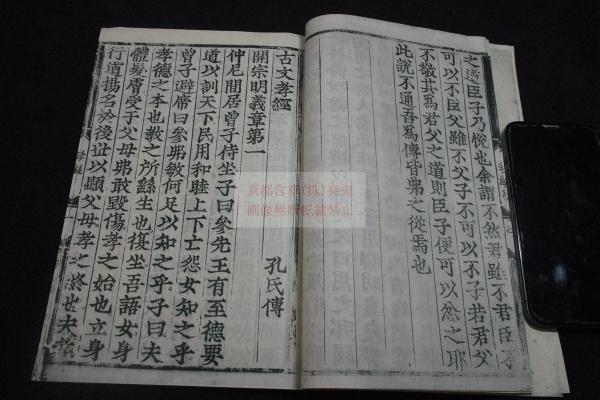 之道臣子乃悅也余謂不然君雖不君臣不
可以不臣父雖不父子不可以不子若君父
不敬其爲君父之道則臣子便可以忿之耶
此說不通吾爲傳皆弗之從焉也
古文孝經
開宗明義章第一
孔氏傳
仲尼閒居曾子侍坐子曰參先王有至德要
道以訓天下民用和睦上下亡怨女知之乎
曾子避席曰參弗敏何足以知之乎子曰夫
孝德之本也教之所繇生也復坐吾語女身
體髮膚受于父母弗敢毀傷孝之始也立身
行道揚名於後世以顯父母孝之終也夫孝
京都含章(株)発売
画像無断転載禁止